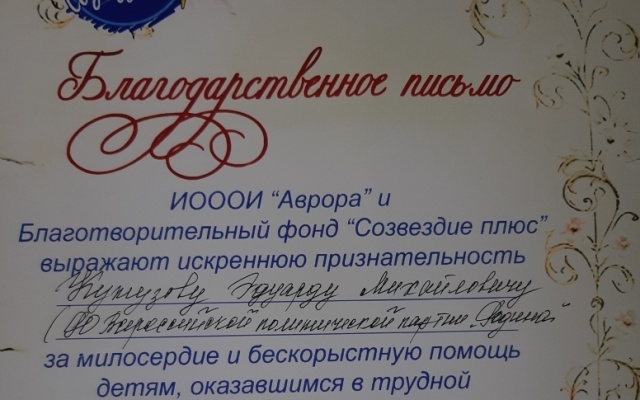 Благодарственное письмо
ИОООИ "Аврора" и
Благотворительный фонд "Созвездие плюс"
выражают искреннюю признательность
Кутузову Эдуарду Михайловичу
(РО Всероссийской политической партии "Родина"
за милосердие и бескорыстную помощь
детям, оказавшимся в трудной